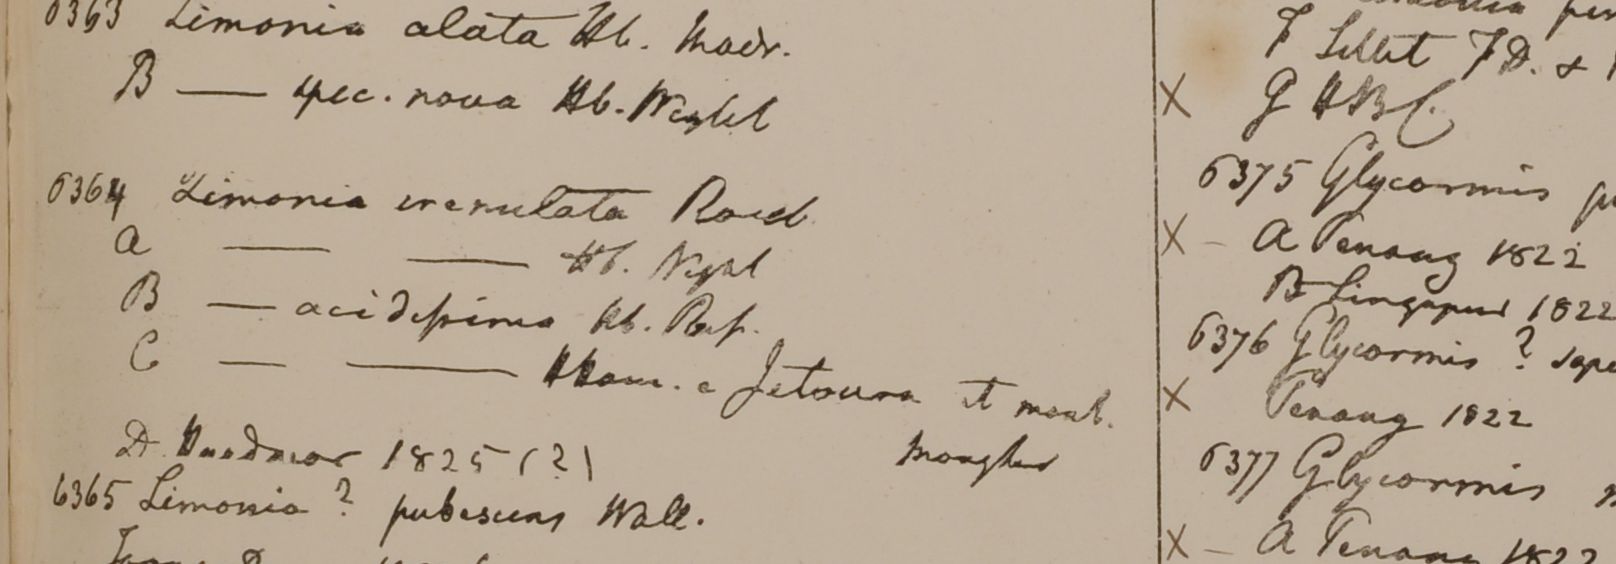 6363 Limonia alata Hb. Madr.
B — spec. nova Hb. Weghtl
6364 Limonia crenulata Roxb
a — — Hb. Nepal
B — acidissima Hb. Ruf.
C — — HHam. e Jetoura et mont.
Mongher
D. Hurdwar 1825 (?)
6365 Limonia ? pubescens Wall.
F Sillet FD. &
X G HBC.
6375 Glycosmis
X – A Penang 1822
B Singapur 1822
6376 Glycosmis ? sapi
X Penang 1822
6377 Glycosmis
X – A Penang 1822